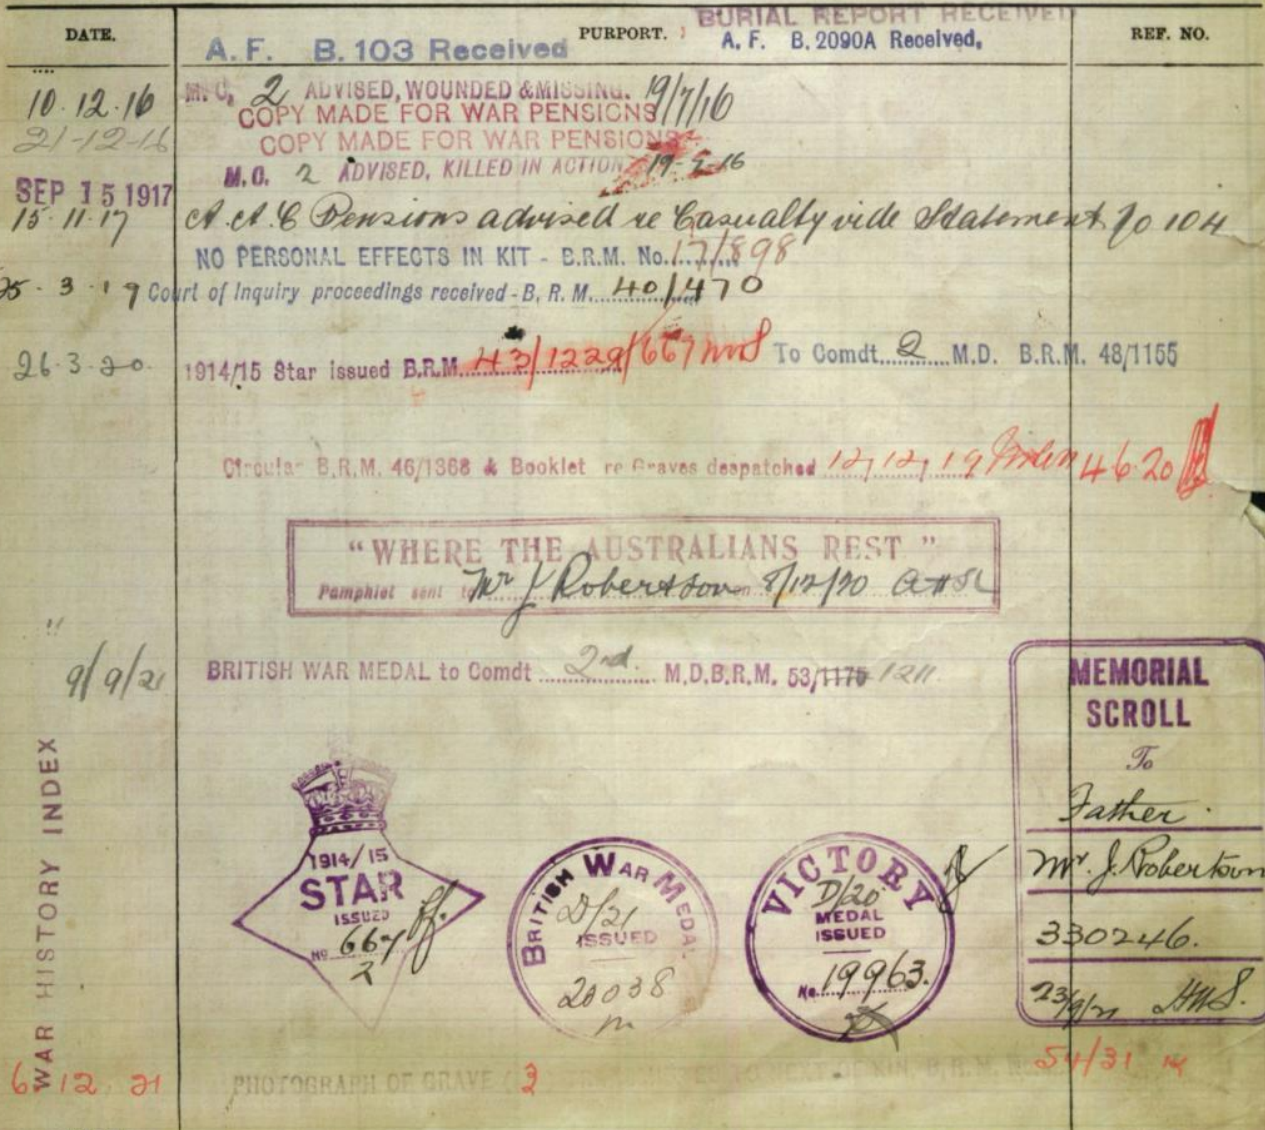 DATE. PURPORT. REF. NO.
BURIAL REPORT RECEIVED
A. F. B. 103 Received A. F. B. 2090A Received.
10.12.16 M.C. 2 ADVISED, WOUNDED & MISSING. 19/7/16
COPY MADE FOR WAR PENSIONS
21-12-16 COPY MADE FOR WAR PENSIONS
M.C. 2 ADVISED, KILLED IN ACTION
SEP 15 1917
15.11.17 A.A.G Pensions advised re Casualty vide Statement No 104
NO PERSONAL EFFECTS IN KIT - B.R.M. No. 17/898
25.3.19 Court of Inquiry proceedings received - B. R. M. 40/470
26.3.20. 1914/15 Star issued B.R.M. 43/1229/667 To Comdt. 2 M.D. B.R.M. 48/1155
Circular B.R.M. 46/1368 & Booklet re Graves despatched 12/12/19 4 6 20
"WHERE THE AUSTRALIANS REST"
Pamphlet sent to Mr J Robertson on 8/12/20
9/9/21 BRITISH WAR MEDAL to Comdt 2nd. M.D.B.R.M. 53/1175 1211
MEMORIAL
SCROLL
To
Father.
Mr. J. Robertson
330246.
23/9/21
WAR HISTORY INDEX
1914/15
STAR
ISSUED
No 667
2
BRITISH WAR MEDAL
D/21
ISSUED
20038
VICTORY
D/20
MEDAL
ISSUED
No. 19963.
6 12 21 PHOTOGRAPH OF GRAVE (3) NEXT OF KIN, B.R.M. 54/31